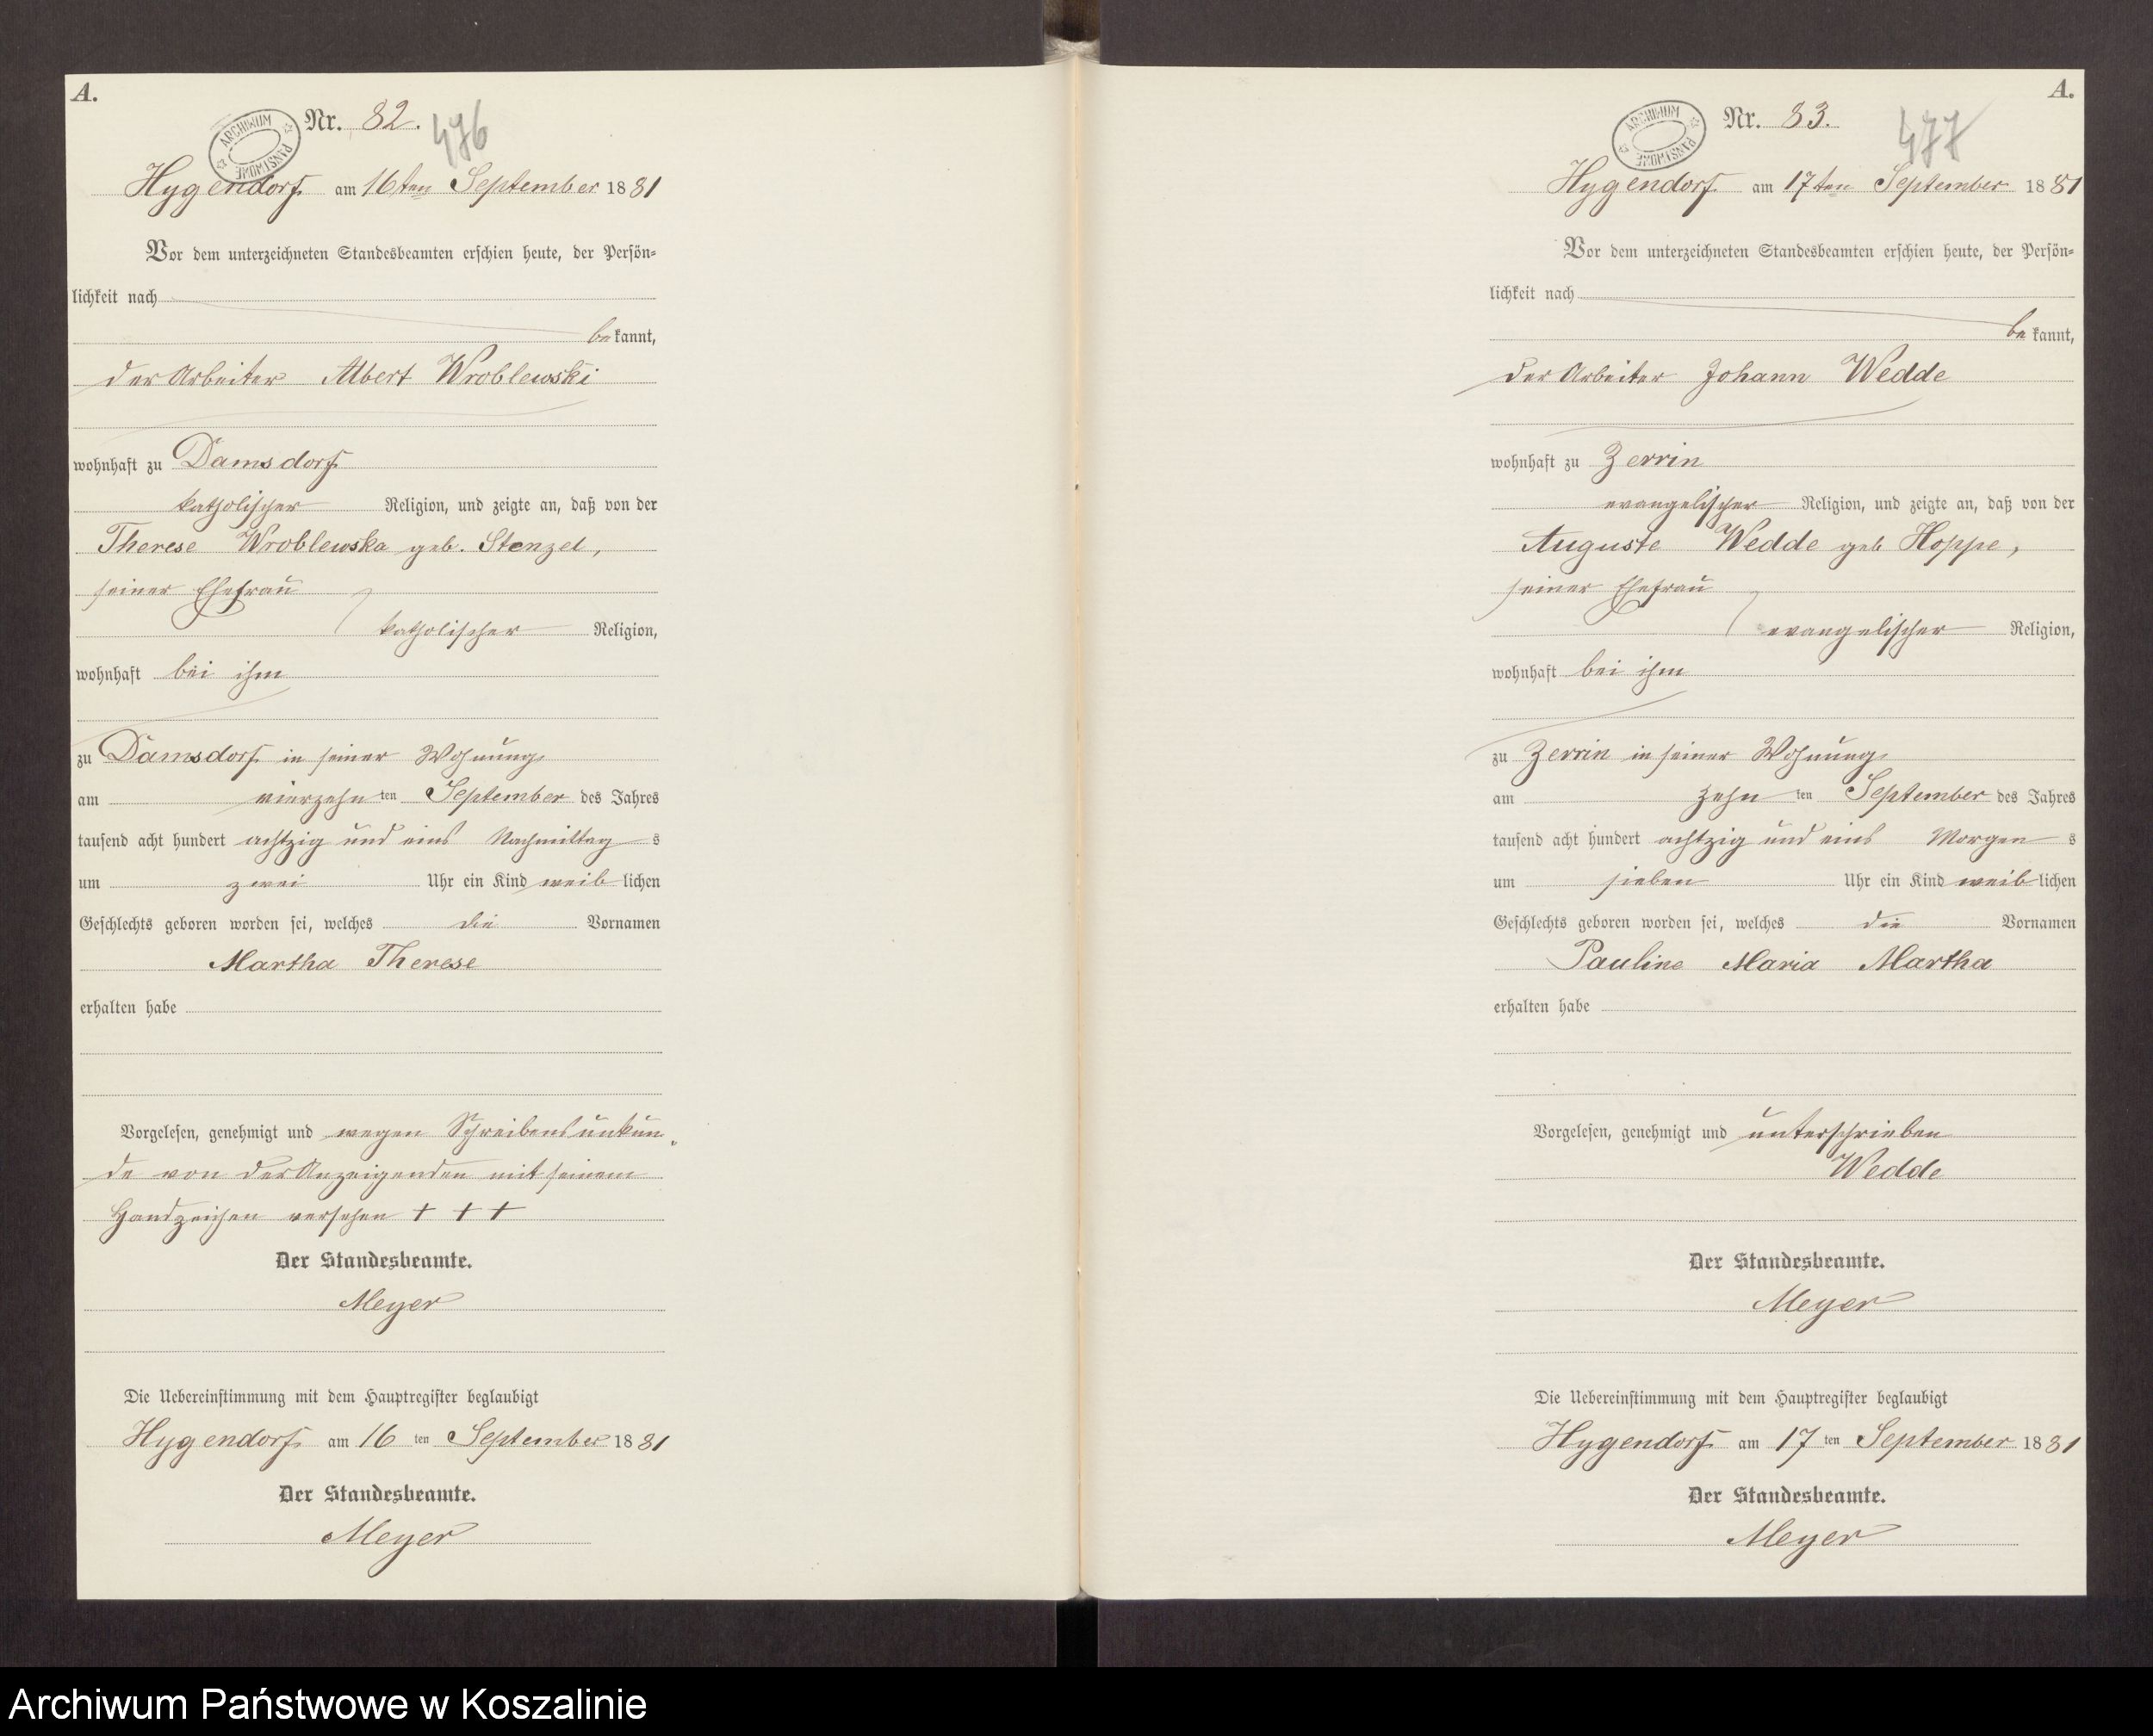 A.
ARCHIWUM PAŃSTWOWE
Nr. 82.
476
Hygendorf am 16ten September 1881
Vor dem unterzeichneten Standesbeamten erschien heute, der Persön-
lichkeit nach
bekannt,
der Arbeiter Albert Wroblewski
wohnhaft zu Damsdorf
katholischer Religion, und zeigte an, daß von der
Therese Wroblewska geb. Stenzel,
seiner Ehefrau
katholischer Religion,
wohnhaft bei ihm
zu Damsdorf in seiner Wohnung
am vierzehn ten September des Jahres
tausend acht hundert achtzig und eins Nachmittag s
um zwei Uhr ein Kind weiblichen
Geschlechts geboren worden sei, welches die Vornamen
Martha Therese
erhalten habe
Vorgelesen, genehmigt und wegen Schreibensunkun-
de von der Anzeigenden mit seinem
Handzeichen versehen + + +
Der Standesbeamte.
Meyer
Die Uebereinstimmung mit dem Hauptregister beglaubigt
Hygendorf am 16 ten September 1881
Der Standesbeamte.
Meyer
A.
ARCHIWUM PAŃSTWOWE
Nr. 83.
477
Hygendorf am 17ten September 1881
Vor dem unterzeichneten Standesbeamten erschien heute, der Persön-
lichkeit nach
bekannt,
der Arbeiter Johann Wedde
wohnhaft zu Zerrin
evangelischer Religion, und zeigte an, daß von der
Auguste Wedde geb Hoppe,
seiner Ehefrau
evangelischer Religion,
wohnhaft bei ihm
zu Zerrin in seiner Wohnung
am zehn ten September des Jahres
tausend acht hundert achtzig und eins Morgen s
um sieben Uhr ein Kind weiblichen
Geschlechts geboren worden sei, welches die Vornamen
Pauline Maria Martha
erhalten habe
Vorgelesen, genehmigt und unterschrieben
Wedde
Der Standesbeamte.
Meyer
Die Uebereinstimmung mit dem Hauptregister beglaubigt
Hygendorf am 17 ten September 1881
Der Standesbeamte.
Meyer
Archiwum Państwowe w Koszalinie